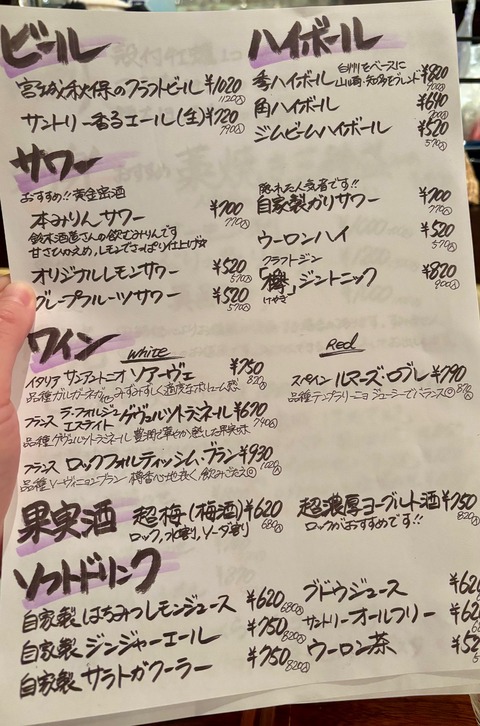 ビール
宮城秋保のクラフトビール ¥1020
1120込
サントリー香るエール(生) ¥720
790込
ハイボール
秀ハイボール 白州をベースに
山崎・知多をブレンド ¥820
900込
角ハイボール ¥640
700込
ジムビームハイボール ¥520
570込
サワー
おすすめ!!黄金蜜酒
本みりんサワー ¥700
770込
鈴木酒造さんの飲むみりんです
甘さひかえめ、レモンでさっぱり仕上げ☆
オリジナルレモンサワー ¥520
570込
グレープフルーツサワー ¥520
570込
隠れた人気者です!!
自家製ガリサワー ¥700
770込
ウーロンハイ ¥520
570込
クラフトジン
「欅」ジントニック ¥820
けやき 900込
ワイン
White
イタリア サンアントニオ ソアーヴェ ¥750
820込
品種ガルガーネガ他 みずみずしく適度なボリューム感
フランス ラ・フォルジュ
エステイト ゲヴュルツトラミネール ¥670
740込
品種ゲヴュルツトラミネール 豊潤で華やか熟した果実味
フランス ロックフォルティッシム、ブラン ¥930
1020込
品種ソーヴィニヨンブラン 樽香が心地良く飲みごたえ◎
Red
スペイン ルマーズ・ロブレ ¥790
870込
品種テンプラリーニョ ジューシーでバランス◎
果実酒
超梅(梅酒) ¥620
680込
ロック、水割り、ソーダ割り
超濃厚ヨーグルト酒 ¥750
820込
ロックがおすすめです!!
ソフトドリンク
自家製 はちみつレモンジュース ¥620
680込
自家製 ジンジャーエール ¥750
820込
自家製 サラトガクーラー ¥750
820込
ブドウジュース ¥620
サントリーオールフリー ¥62
ウーロン茶 ¥52